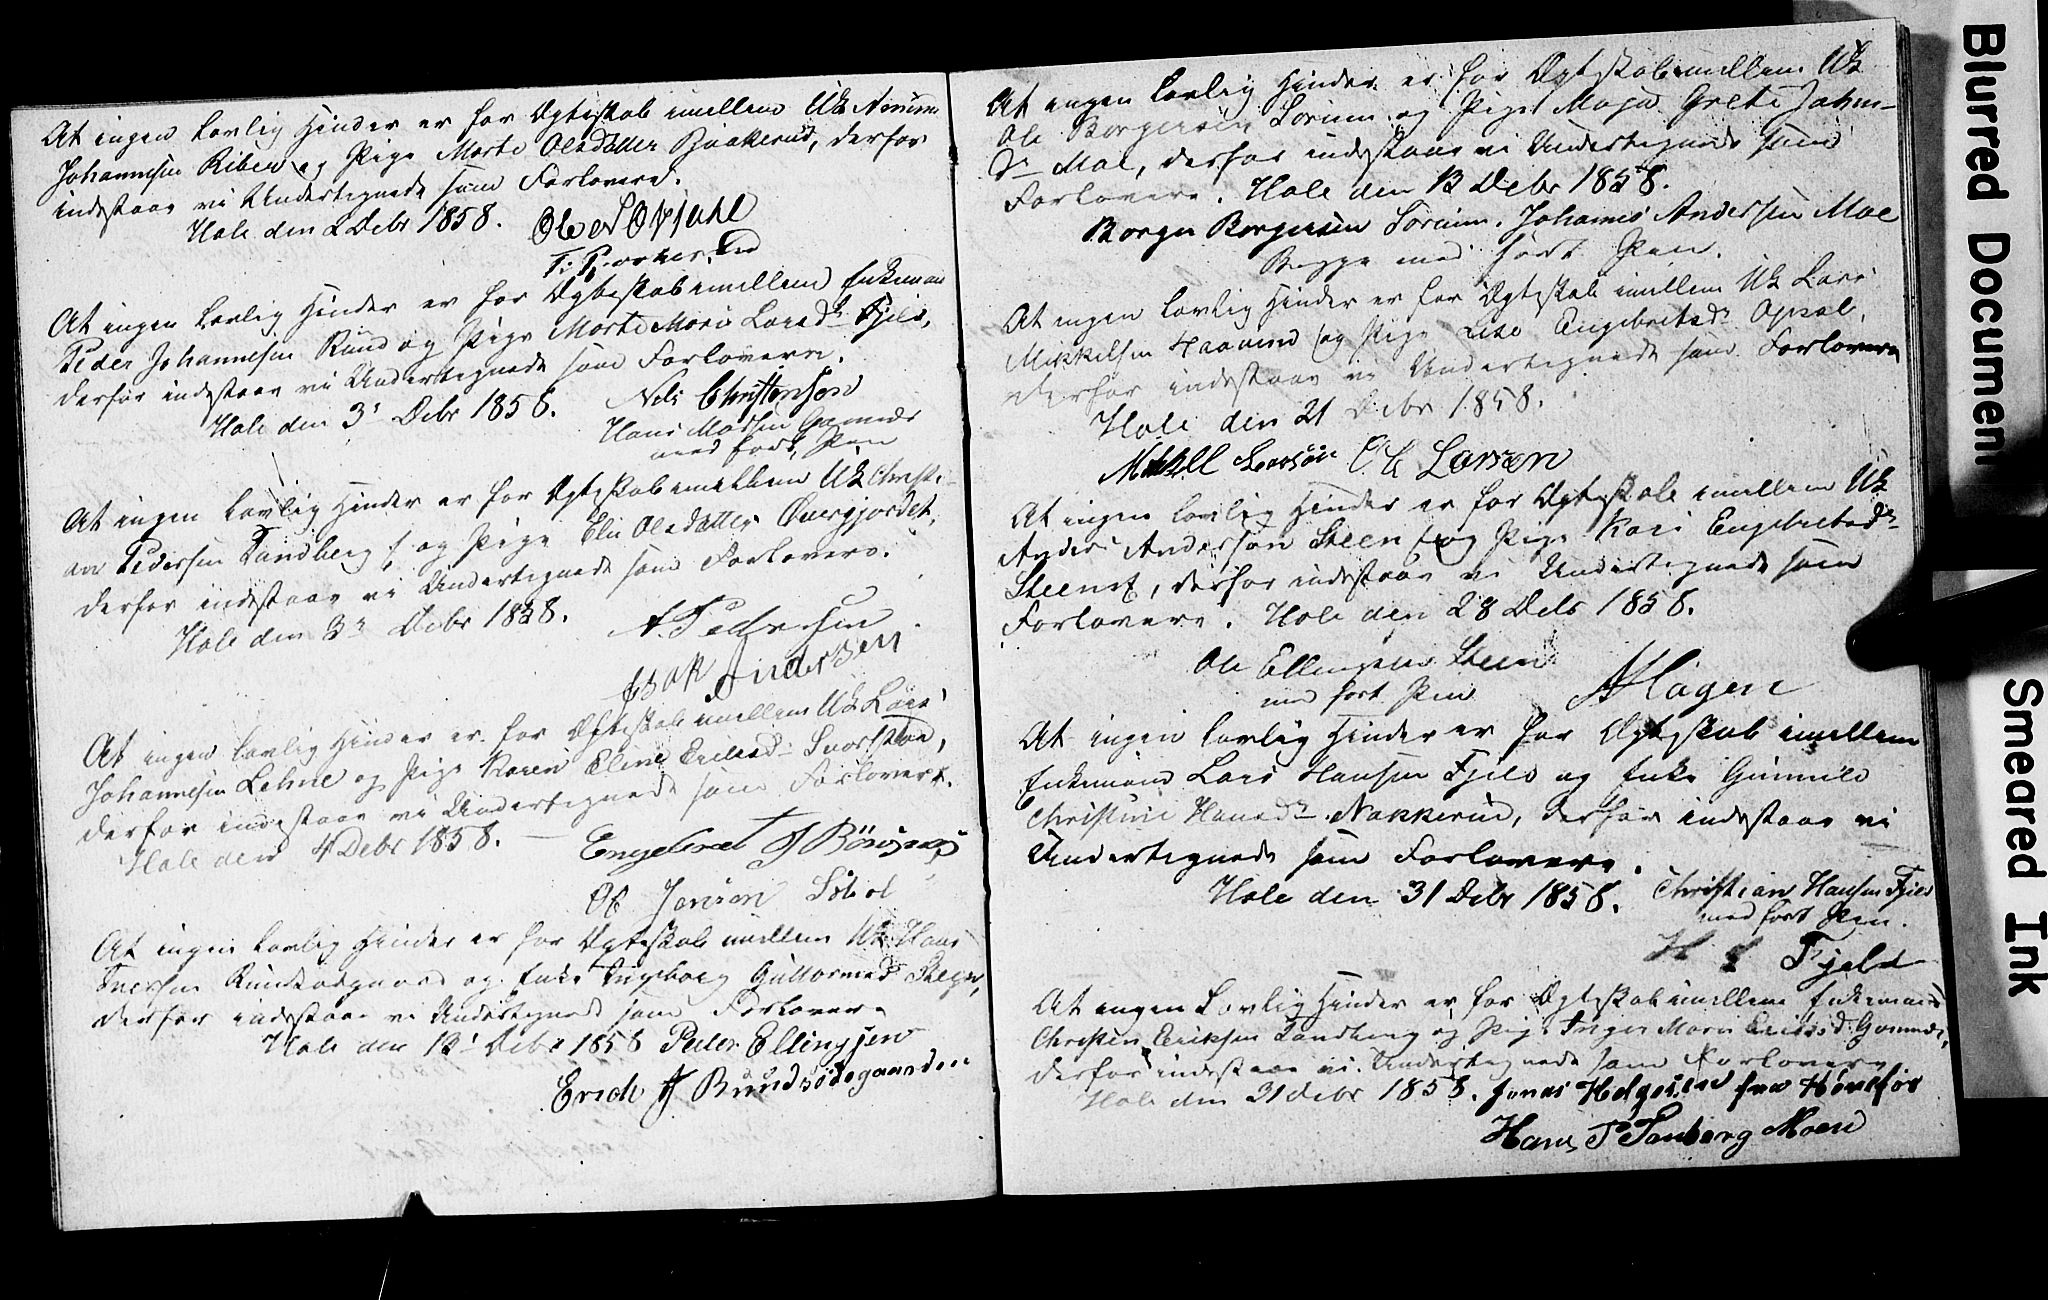 At ingen lovlig Hinder er for Ægteskab imellem Uk
Johannesen Riber og Pige Marte Olsdatter Baakerud, derfor
indestaae vi Undertegnede som Forlovere.
Hole den 2 Debr 1858.
At ingen lovlig Hinder er for Ægteskab imellem Enkemand
Peder Johannesen Rund og Pige Marte Marie Larsdr Fjeld,
derfor indestaae vi Undertegnede som Forlovere.
Hole den 3' Debr 1858. Nels Christensen
Hans Madsen Gomnæs
med ført Pen
At ingen lovlig Hinder er for Ægteskab imellem Uk Christi-
an Pedersen Tandberg og Pige Elie Olsdatter Øvergjordet,
derfor indestaae vi Undertegnede som Forlovere.
Hole den 3' Debr 1858. A. Pedersen
Isak Andersen
At ingen lovlig Hinder er for Ægteskab imellem Uk Lars
Johannesen Lehne og Pige Karen Eline Eriksd
derfor indestaae vi Undertegnede som Forlovere.
Hole den 4 Debr 1858. Engebret J
Ole Jensen
At ingen lovlig Hinder er for Ægteskab imellem Uk Hans
Iversen og Enke Ingeborg Guttormsd Steen,
derfor indestaae vi Undertegnede som Forlovere
Hole den 13' Debr 1858 Peder Ellingsen
Erich J Rundsødegaarden
At ingen lovlig Hinder er for Ægteskab imellem Uk
Ole Borgersen Sørum og Pige Maja Grete Johns-
Dr Moe, derfor indestaae vi Undertegnede som
Forlovere. Hole den 13 Debr 1858.
Borger Borgersen Sørum. Johannes Andersen Moe
Begge med ført Pen.
At ingen lovlig Hinder er for Ægteskab imellem Uk Lars
Mikkelsen og Pige Lise Engebretsdr Opsal,
derfor indestaae vi Undertegnede som Forlovere
Hole den 21 Debr 1858.
Mikkel Larsøn Ole Larsen
At ingen lovlig Hinder er for Ægteskab imellem Uk
Anders Anderson Steen og Pige Kari Engebretsdr
derfor indestaae vi Undertegnede som
Forlovere. Hole den 28 Debr 1858.
Ole Ellingsen Steen
med ført Pen A Hagen
At ingen lovlig Hinder er for Ægteskab imellem
Enkemand Lars Hansen Fjeld og Enke Gunnild
Christine Hansdr Nakkerud, derfor indestaae vi
Undertegnede som Forlovere.
Hole den 31 Debr 1858. Christian Hansen Fjeld
med ført Pen.
H Fjeld
At ingen Lovlig Hinder er for Ægteskab imellem Enkemand
Christen Eriksen Tandberg og Pige Inger Marie Eriksd Gomnæs,
derfor indestaae vi Undertegnede som Forlovere
Hole den 31 Debr 1858. Jonas Helgesen fra Hønefos
Hans P Tanberg Moen
Blurred Documen
Smeared Ink